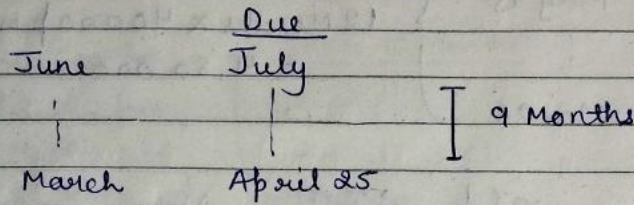 Due
June July
9 Months
March April 25